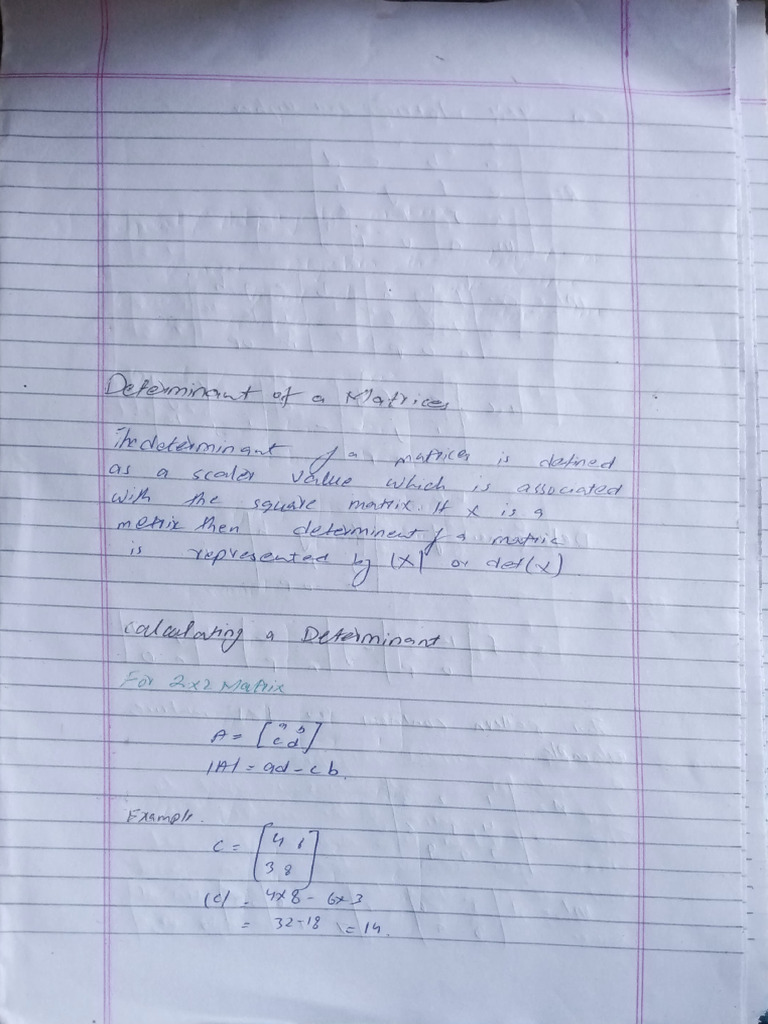 Determinant of a Matrices
The determinant of a matrices is defined
as a scaler value which is associated
with the square matrix. If X is a
metrix then determinent of a matric
is represented by |X| or det(X)
Calculating a Determinant
For 2x2 Matrix
A = [a b
c d]
|A| = ad - cb.
Example.
C = [4 6
3 8]
|C| = 4x8 - 6x3
= 32-18 = 14.